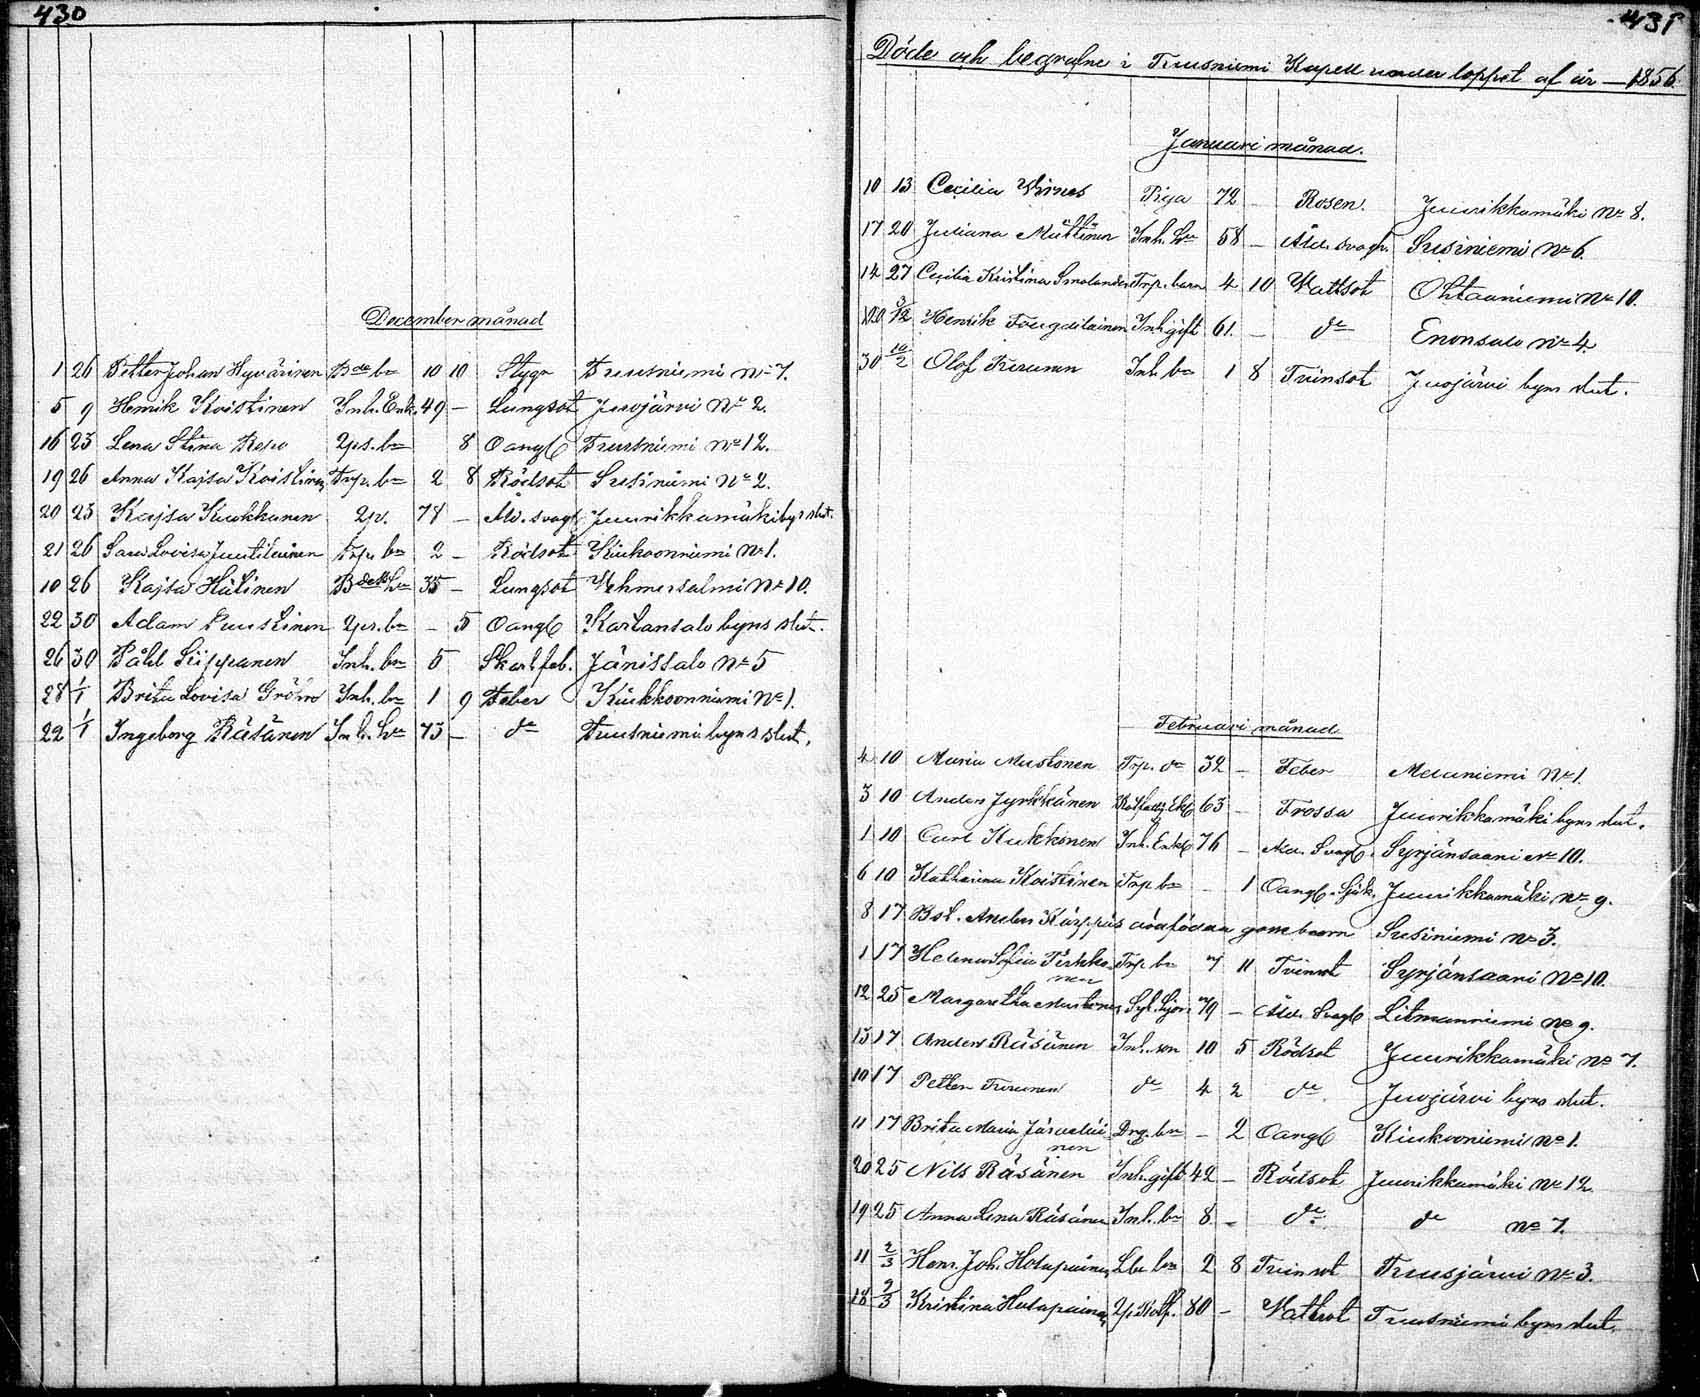 430
December månad
1 26 Petter Johan Hyvärinen Bde bn 10 10 Slag Tuusniemi No 7.
5 9 Henrik Koistinen Inh. Enk. 49 – Lungsot Juojärvi No 2.
16 23 Lena Stina Repo Ups. bn 8 Oangf Tuusniemi No 12.
19 26 Anna Kajsa Koistinen Trp. bn 2 8 Rödsot Susiniemi No 2.
20 23 Kajsa Kuokkanen 78 – Ald. svagh. Juurikkamäki bys slut.
21 26 Sara Lovisa Juutilainen Trp. bn 2 – Rödsot Kiukooniemi No 1.
10 26 Kajsa Hälinen Bde Hu 35 – Lungsot Vehmersalmi No 10.
22 30 Adam Puustinen bn – 5 Oangf Karlansalo byns slut.
26 30 Påhl Siippanen Inh. bn 5 Skarl.feb. Jänissalo No 5
28 1/1 Brita Lovisa Gröhn Inh. bn 1 9 Feber Kiukkooniemi No 1.
22 1/1 Ingeborg Räsänen Inh. Hu 73 – do Tuusniemi byns slut.
431
Döde och begrafne i Tuusniemi Kapell under loppet af år – 1856.
Januari månad.
10 13 Cecilia Wirnes Piga 72 – Rosen. Juurikkamäki No 8.
17 20 Juliana Miettinen Inh. Hu 58 – Åld. svagh. Susiniemi No 6.
14 27 Cecilia Kristina Smolander Trp. barn 4 10 Vattsot Ohtaaniemi No 10.
Henrik Inh. gift 61. – do Enonsalo No 4.
30 10/2 Olof Turunen Inh. bn 1 8 Tvinsot Juojärvi byns slut.
Februari månad
4 10 Maria Mustonen Trp. do 32 – Feber Melaniemi No 1.
3 10 Anders Jyrkkänen 63 – Frossa Juurikkamäki byns slut.
1 10 Carl Kukkonen Inh. Enkl 76 – Åld. Svagh. Syrjänsaari No 10.
6 10 Katharina Koistinen Trp bn – 1 Oangf. Sjuk. Juurikkamäki No 9.
8 17 Bol. Anders Kärppäs dödfödda gossebarn Susiniemi No 3.
1 17 Helena Sofia Pirhko- Trp bn 7 11 Tvinsot Syrjänsaari No 10.
nen
12 25 Margaretha Mustonen 79 – Åld. Svagh Litmaniemi No 9.
13 17 Anders Räsänen Inh. son 10 5 Rödsot Juurikkamäki No 7.
10 17 Petter Turunen do 4 2 do Juojärvi byns slut.
11 17 Brita Maria Järveläi- Drg. bn – 2 Oangf Kiukooniemi No 1.
nen
20 25 Nils Räsänen Inh. gift 42 – Rödsot Juurikkamäki No 12.
19 25 Anna Lena Räsänen Inh. bn 8 – do do No 7.
11 2/3 Henr. Joh. Holopainen Lbr bn 2 8 Tvinsot Tuusjärvi No 3.
18 2/3 Kristina Holopainen 80 – Vattsot Tuusniemi byns slut.